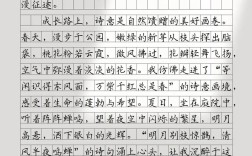 漫征途。
成长路上，诗意是自然馈赠的美好画卷。
春天，漫步于公园，嫩绿的新芽从枝头探出脑
袋，桃花粉若云霞，微风拂过，花瓣轻舞飞扬，
空气中弥漫着淡淡的花香。我仿佛走进了“等
闲识得东风面，万紫千红总是春”的诗意画境，
感受着生命的蓬勃与希望。夏日，坐在庭院中，
听着阵阵蝉鸣，望着夜空中闪烁的繁星，明月
高悬，洒下银白的光辉，“明月别枝惊鹊，清
风半夜鸣蝉”的诗句涌上心头，让我沉醉于这